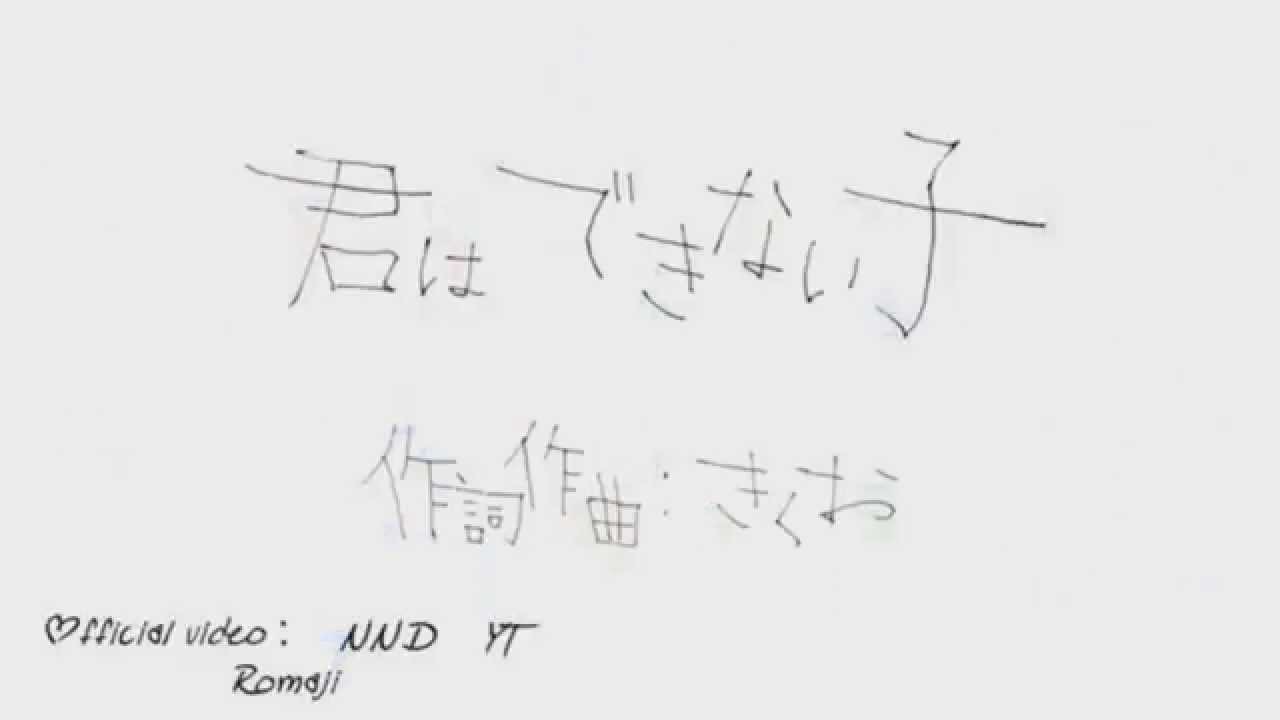 君はできない子
作詞作曲:きくお
♡fficial video: NND YT
Romaji